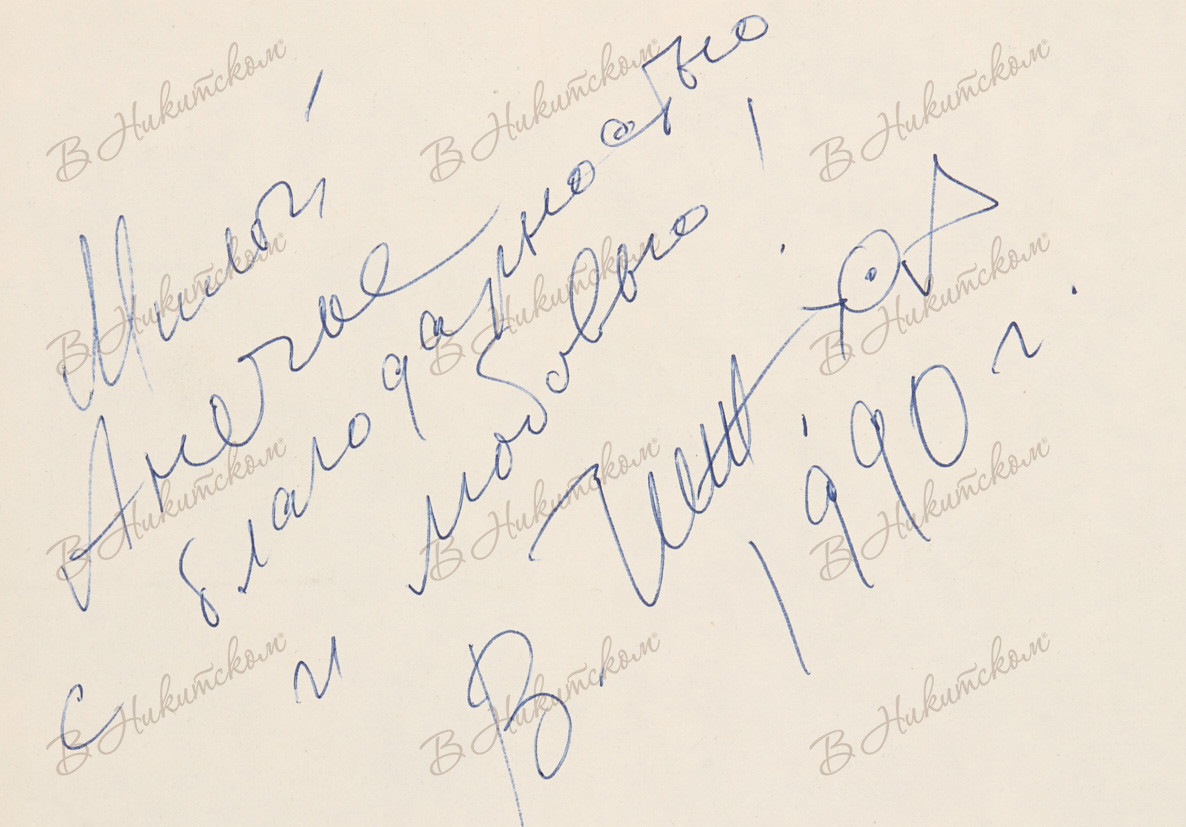 Милой
Анечке
с благодарностью
и любовью!
В.
1990 г.
В Никитском® В Никитском® В Никитском®
В Никитском® В Никитском® В Никитском®
В Никитском® В Никитском® В Никитском®
В Никитском® В Никитском® В Никитском®